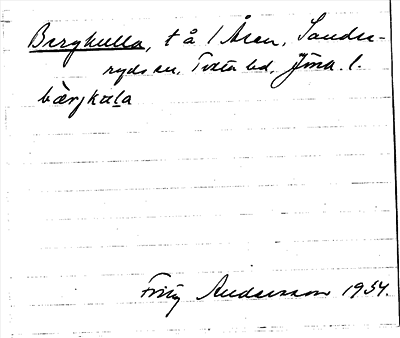 Bergkulla, t å 1 Åsen, Sanders-
ryds sn, Tveta hd, Jkpg. l.
bærjkɷla
Fritz Andersson 1954.